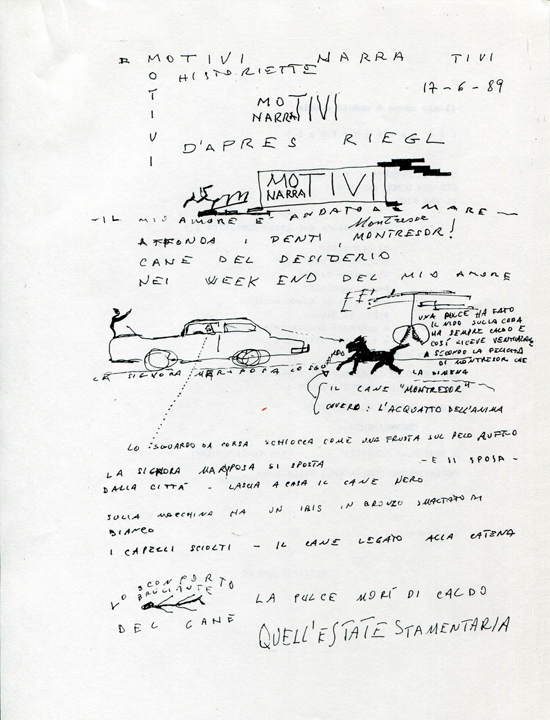 MOTIVI NARRA TIVI
MOTIVI
HISTORIETTE
17-6-89
MO TIVI
NARRA
D'APRES RIEGL
MO TIVI
NARRA
- IL MIO AMORE È ANDATO AL MARE -
Montresor
AFFONDA I DENTI, MONTRESOR!
CANE DEL DESIDERIO
NEI WEEK END DEL MIO AMORE
UNA PULCE HA FATO
IL NIDO SULLA CODA
HA SEMPRE CALDO E
COSÌ RICEVE
A SECONDO LA
DI MONTRESOR CHE
LA DIMENA
LA SIGNORA MARIPOSA LO SGUARDO
IL CANE "MONTRESOR"
OVVERO: L'ACQUATTO DELL'ANIMA
LO SGUARDO DA CORSA SCHIOCCA COME UNA FRUSTA SUL PELO
LA SIGNORA MARIPOSA SI SPOSTA - E SI SPOSA -
DALLA CITTÀ - LASCIA A CASA IL CANE NERO
SULLA MACCHINA HA UN IBIS IN BRONZO SMALTATO DI
BIANCO
I CAPELLI SCIOLTI - IL CANE LEGATO ALLA CATENA
LO SCONFORTO
BRUCIANTE
DEL CANE
LA PULCE MORÌ DI CALDO
QUELL'ESTATE STAMENTARIA